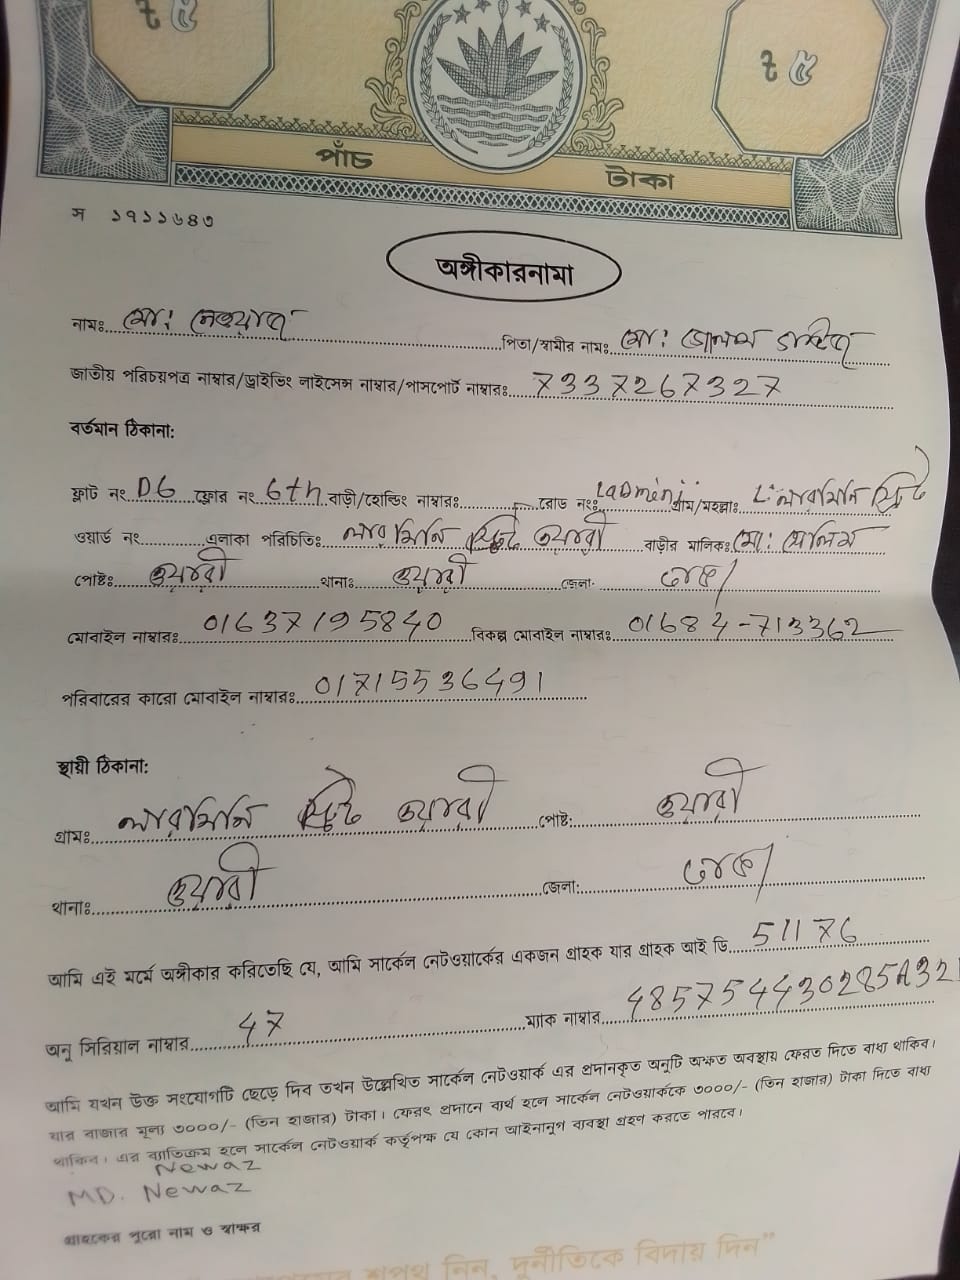 ৳ ৫ ৳ ৫
পাঁচ টাকা
স ১৭১১৬৪৩
অঙ্গীকারনামা
নামঃ মো: নেওয়াজ পিতা/স্বামীর নামঃ মো:
জাতীয় পরিচয়পত্র নাম্বার/ড্রাইভিং লাইসেন্স নাম্বার/পাসপোর্ট নাম্বারঃ 7337267327
বর্তমান ঠিকানা:
ফ্লাট নং D6 ফ্লোর নং 6th বাড়ী/হোল্ডিং নাম্বারঃ রোড নং: গ্রাম/মহল্লাঃ লারমিনি স্ট্রিট
ওয়ার্ড নং এলাকা পরিচিতিঃ লারমিনি স্ট্রিট ওয়ারী বাড়ীর মালিকঃ মো: সেলিম
পোষ্টঃ ওয়ারী থানাঃ ওয়ারী জেলা: ঢাকা
মোবাইল নাম্বারঃ 01637195840 বিকল্প মোবাইল নাম্বারঃ 01684-713362
পরিবারের কারো মোবাইল নাম্বারঃ 01715536491
স্থায়ী ঠিকানা:
গ্রামঃ লারমিনি স্ট্রিট ওয়ারী পোষ্ট: ওয়ারী
থানাঃ ওয়ারী জেলা: ঢাকা
আমি এই মর্মে অঙ্গীকার করিতেছি যে, আমি সার্কেল নেটওয়ার্কের একজন গ্রাহক যার গ্রাহক আই ডি 51176
অনু সিরিয়াল নাম্বার 47 ম্যাক নাম্বার 4857544430285A32
আমি যখন উক্ত সংযোগটি ছেড়ে দিব তখন উল্লেখিত সার্কেল নেটওয়ার্ক এর প্রদানকৃত অনুটি অক্ষত অবস্থায় ফেরত দিতে বাধ্য থাকিব।
যার বাজার মূল্য ৩০০০/- (তিন হাজার) টাকা। ফেরৎ প্রদানে ব্যর্থ হলে সার্কেল নেটওয়ার্ককে ৩০০০/- (তিন হাজার) টাকা দিতে বাধ্য
থাকিব। এর ব্যতিক্রম হলে সার্কেল নেটওয়ার্ক কর্তৃপক্ষ যে কোন আইনানুগ ব্যবস্থা গ্রহণ করতে পারবে।
Newaz
MD. Newaz
গ্রাহকের পুরো নাম ও স্বাক্ষর
শপথ নিন, দুর্নীতিকে বিদায় দিন”